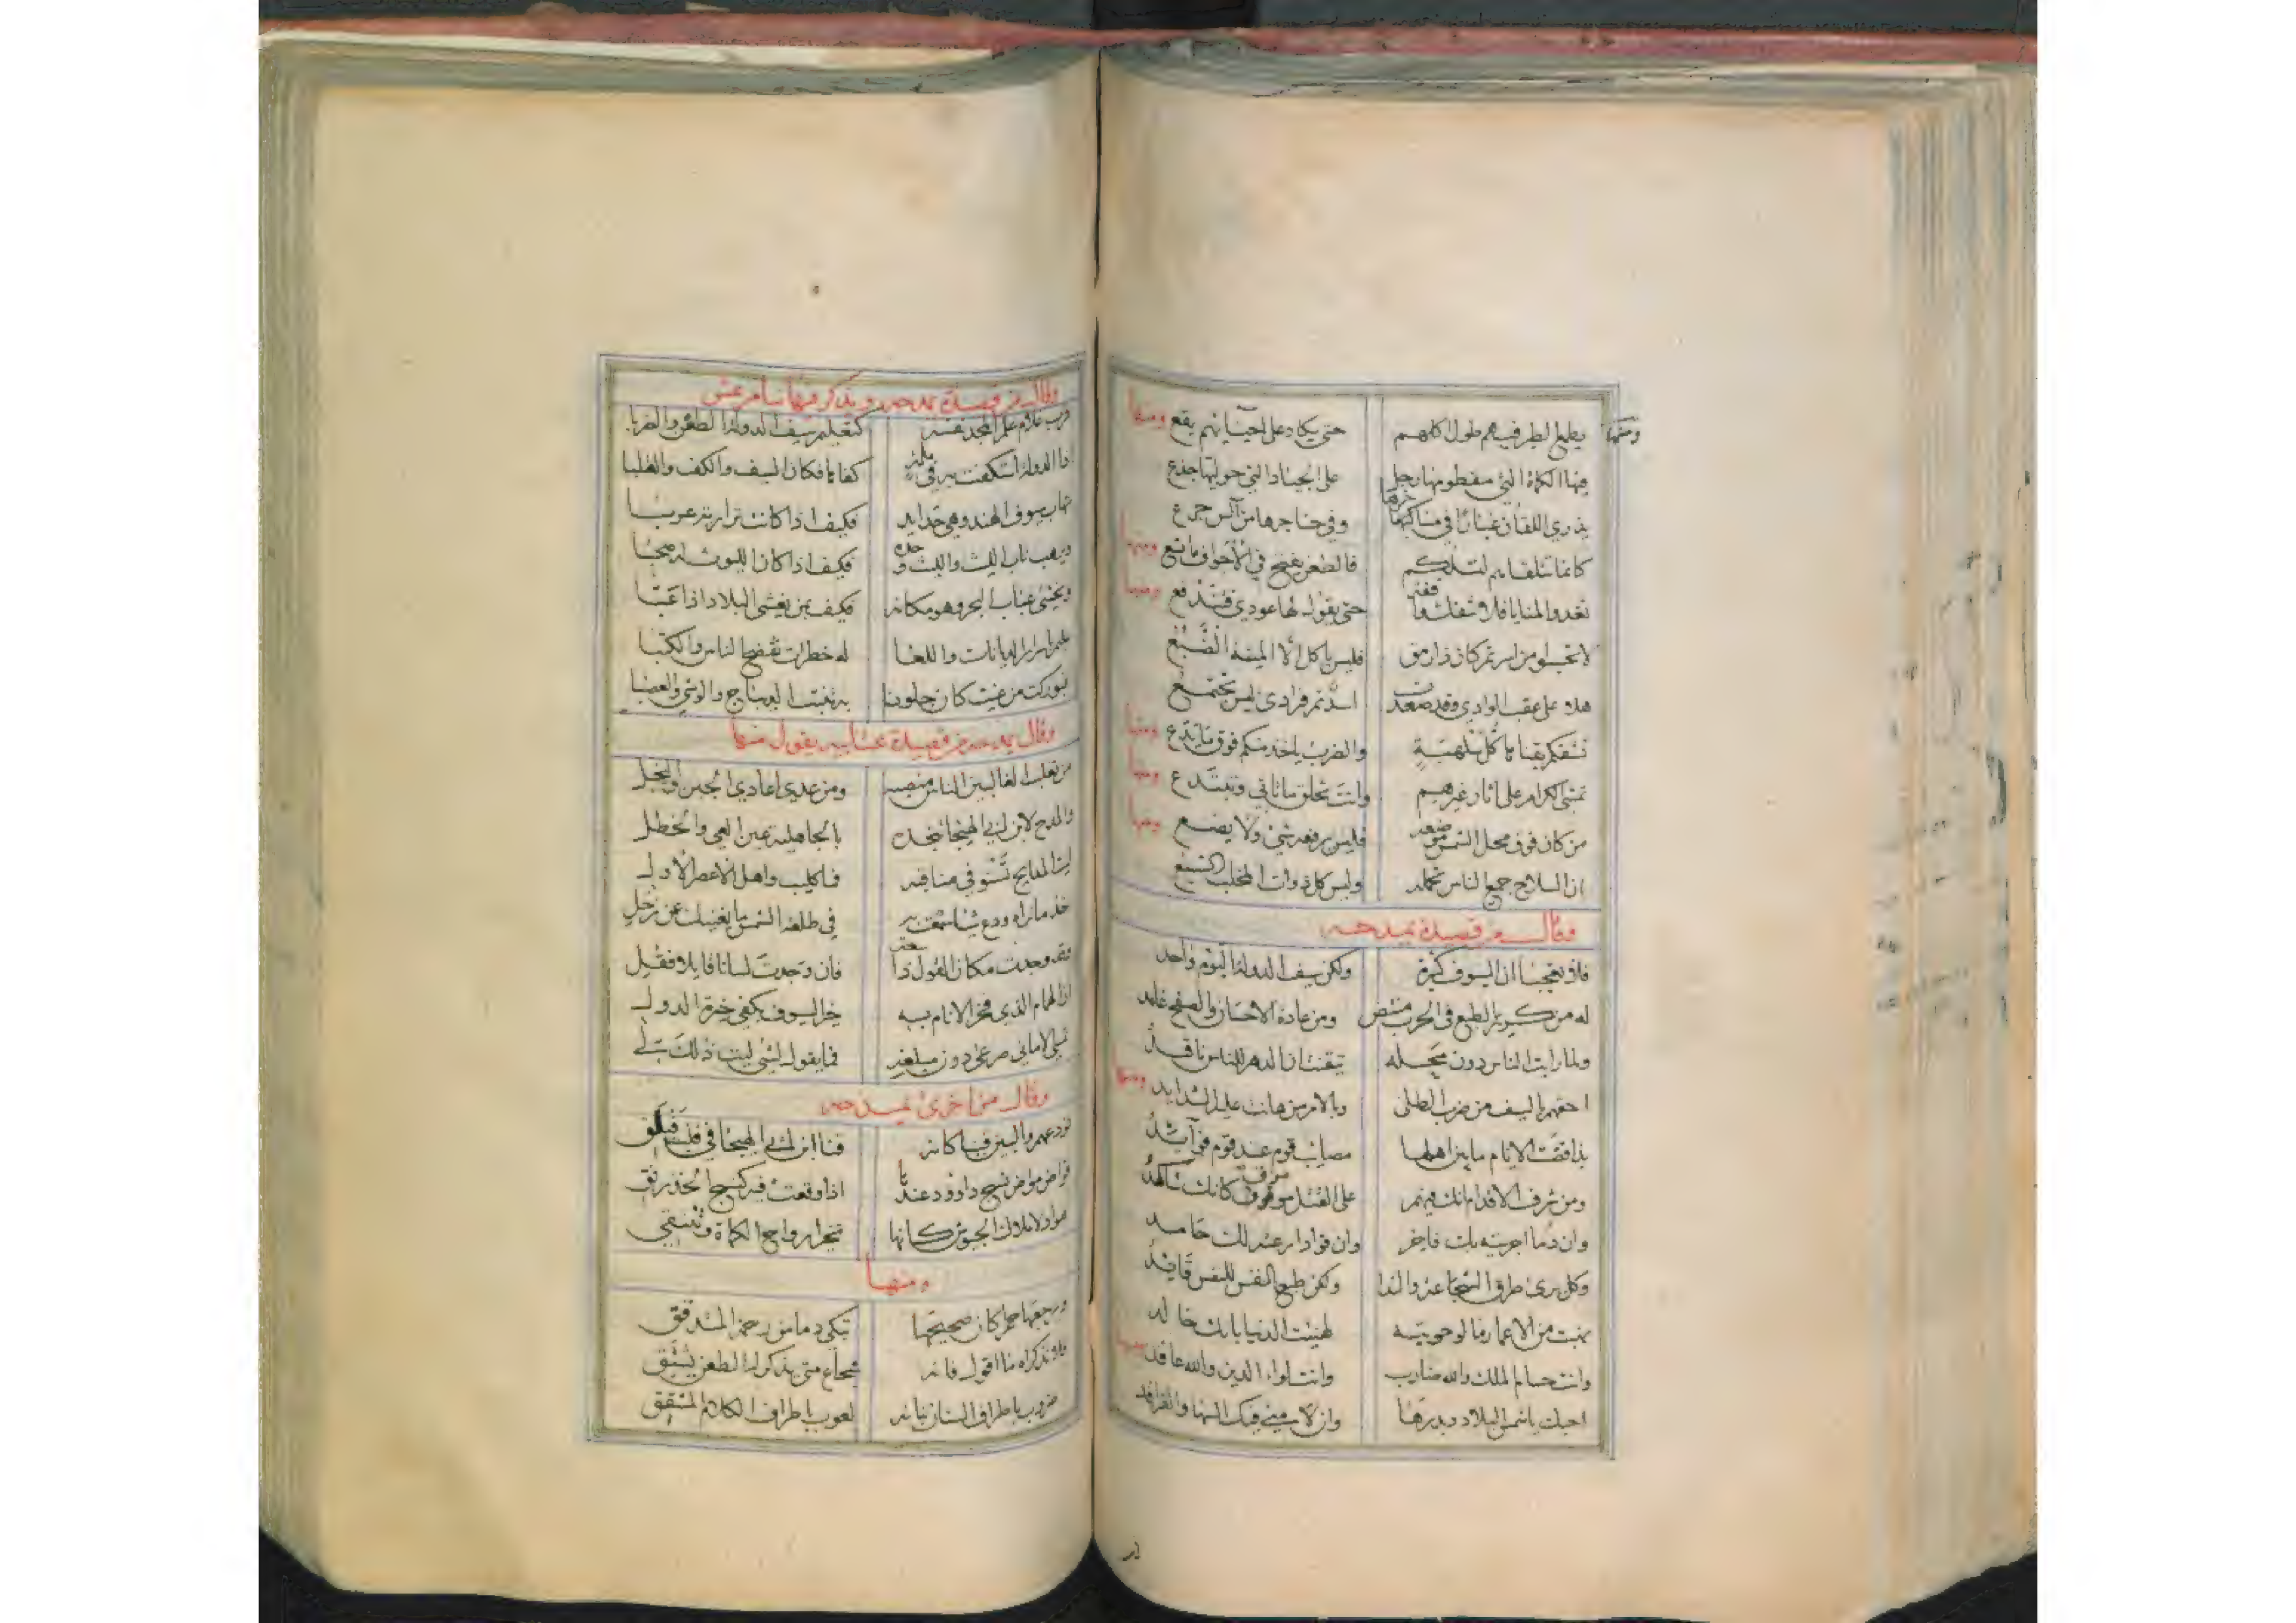 ومنها يطمع الطير فيهم طول اكلهم حتى يكاد على احيائهم يقع ومنها
فيها الكماة التي مفطومها رجل على الجياد التي حوليها جذع
يذري اللقان غبارا في مناخرها وفي حناجرها من آلس جرع
كانما تتلقاهم لتسلكهم فالطعن يفتح في الاجواف ما تسع ومنها
تغدو المنايا فلا تنفك واقفة حتى يقول لها عودي فتندفع ومنها
لا تحسبوا من اسرتم كان ذا رمق فليس ياكل الا الميتة الضبع
هلا على عقب الوادي وقد صعدت اسد تمر فرادى ليس تجتمع
تشقكم بقناها كل سلهبة والضرب ياخذ منكم فوق ما يدع ومنها
تمشي الكرام على اثار غيرهم وانت تخلق ما تاتي وتبتدع ومنها
من كان فوق محل الشمس موضعه فليس يرفعه شيء ولا يضع ومنها
ان السلاح جميع الناس تحمله وليس كل ذوات المخلب السبع
وقال من قصيدة يمدحه
فلا تعجبا ان السيوف كثيرة ولكن سيف الدولة اليوم واحد
له من كريم الطبع في الحرب منتض ومن عادة الاحسان والصفح غامد
ولما رايت الناس دون محله تيقنت ان الدهر للناس ناقد
احقهم بالسيف من ضرب الطلى وبالامر من هانت عليه الشدايد ومنها
بذا قضت الايام ما بين اهلها مصايب قوم عند قوم فوآيد
ومن شرف الاقدام انك فيهم على القتل موموق كانك شاكد
وان دما اجريته بك فاخر وان فوادا رعته لك حامد
وكل يرى طرق الشجاعة والندا ولكن طبع النفس للنفس قايد
نهبت من الاعمار ما لو حويته لهنيت الدنيا بانك خالد
وانت حسام الملك والله ضارب وانت لواء الدين والله عاقد ومنها
احبك يا شمس البلاد وبدرها وان لامني فيك السها والفراقد
وقال من قصيدة يمدحه ويذكر فيها بنا مرعش
فرب غلام علم المجد نفسه كتعليم سيف الدولة الطعن والضربا
اذا الدولة استكفت به في ملمة كفاها فكان السيف والكف والقلبا
تهاب سيوف الهند وهي حدايد فكيف اذا كانت نزارية عربا
ويرهب ناب الليث والليث وحده فكيف اذا كان الليوث له صحبا
ويخشى عباب البحر وهو مكانه فكيف بمن يغشى البلاد اذا عبا
عليم باسرار الديانات واللغا له خطرات تفضح الناس والكتبا
فبوركت من غيث كان جلودنا به تنبت الديباج والوشي والعصبا
وقال يمدحه من قصيدة عتابيه يقول منها
من تغلب الغالبين الناس منصبه ومن عدي اعادي الجبن والبخل
والمدح لابن ابي الهيجا تنجده بالجاهلية عين العي والخطل
ليت المدايح تستوفي مناقبه فما كليب واهل الاعصر الاول
خذ ما تراه ودع شيا سمعت به في طلعة الشمس ما يغنيك عن زحل
وقد وجدت مكان القول ذا سعة فان وجدت لسانا قايلا فقل
ان الهمام الذي فخر الانام به خير السيوف بكفي خيرة الدول
تمسي الاماني صرعى دون مبلغه فما يقول لشي ليت ذلك لي
وقال من اخرى يمدحه
نودعهم والبين فينا كانه قنا ابن ابي الهيجا في قلب فيلق
قواض مواض نسج داوود عندها اذا وقعت فيه كنسج الخذرنق
هواد لاملاك الجيوش كانها تخير ارواح الكماة وتنتقي
ومنها
ويرجعها حمرا كان صحيحها تبكي دما من رحمة المتدقق
فلا تذكراه ما اقول فانه شجاع متى يذكر له الطعن يشتق
ضروب باطراف السنان بنانه لعوب باطراف الكلام المشقق